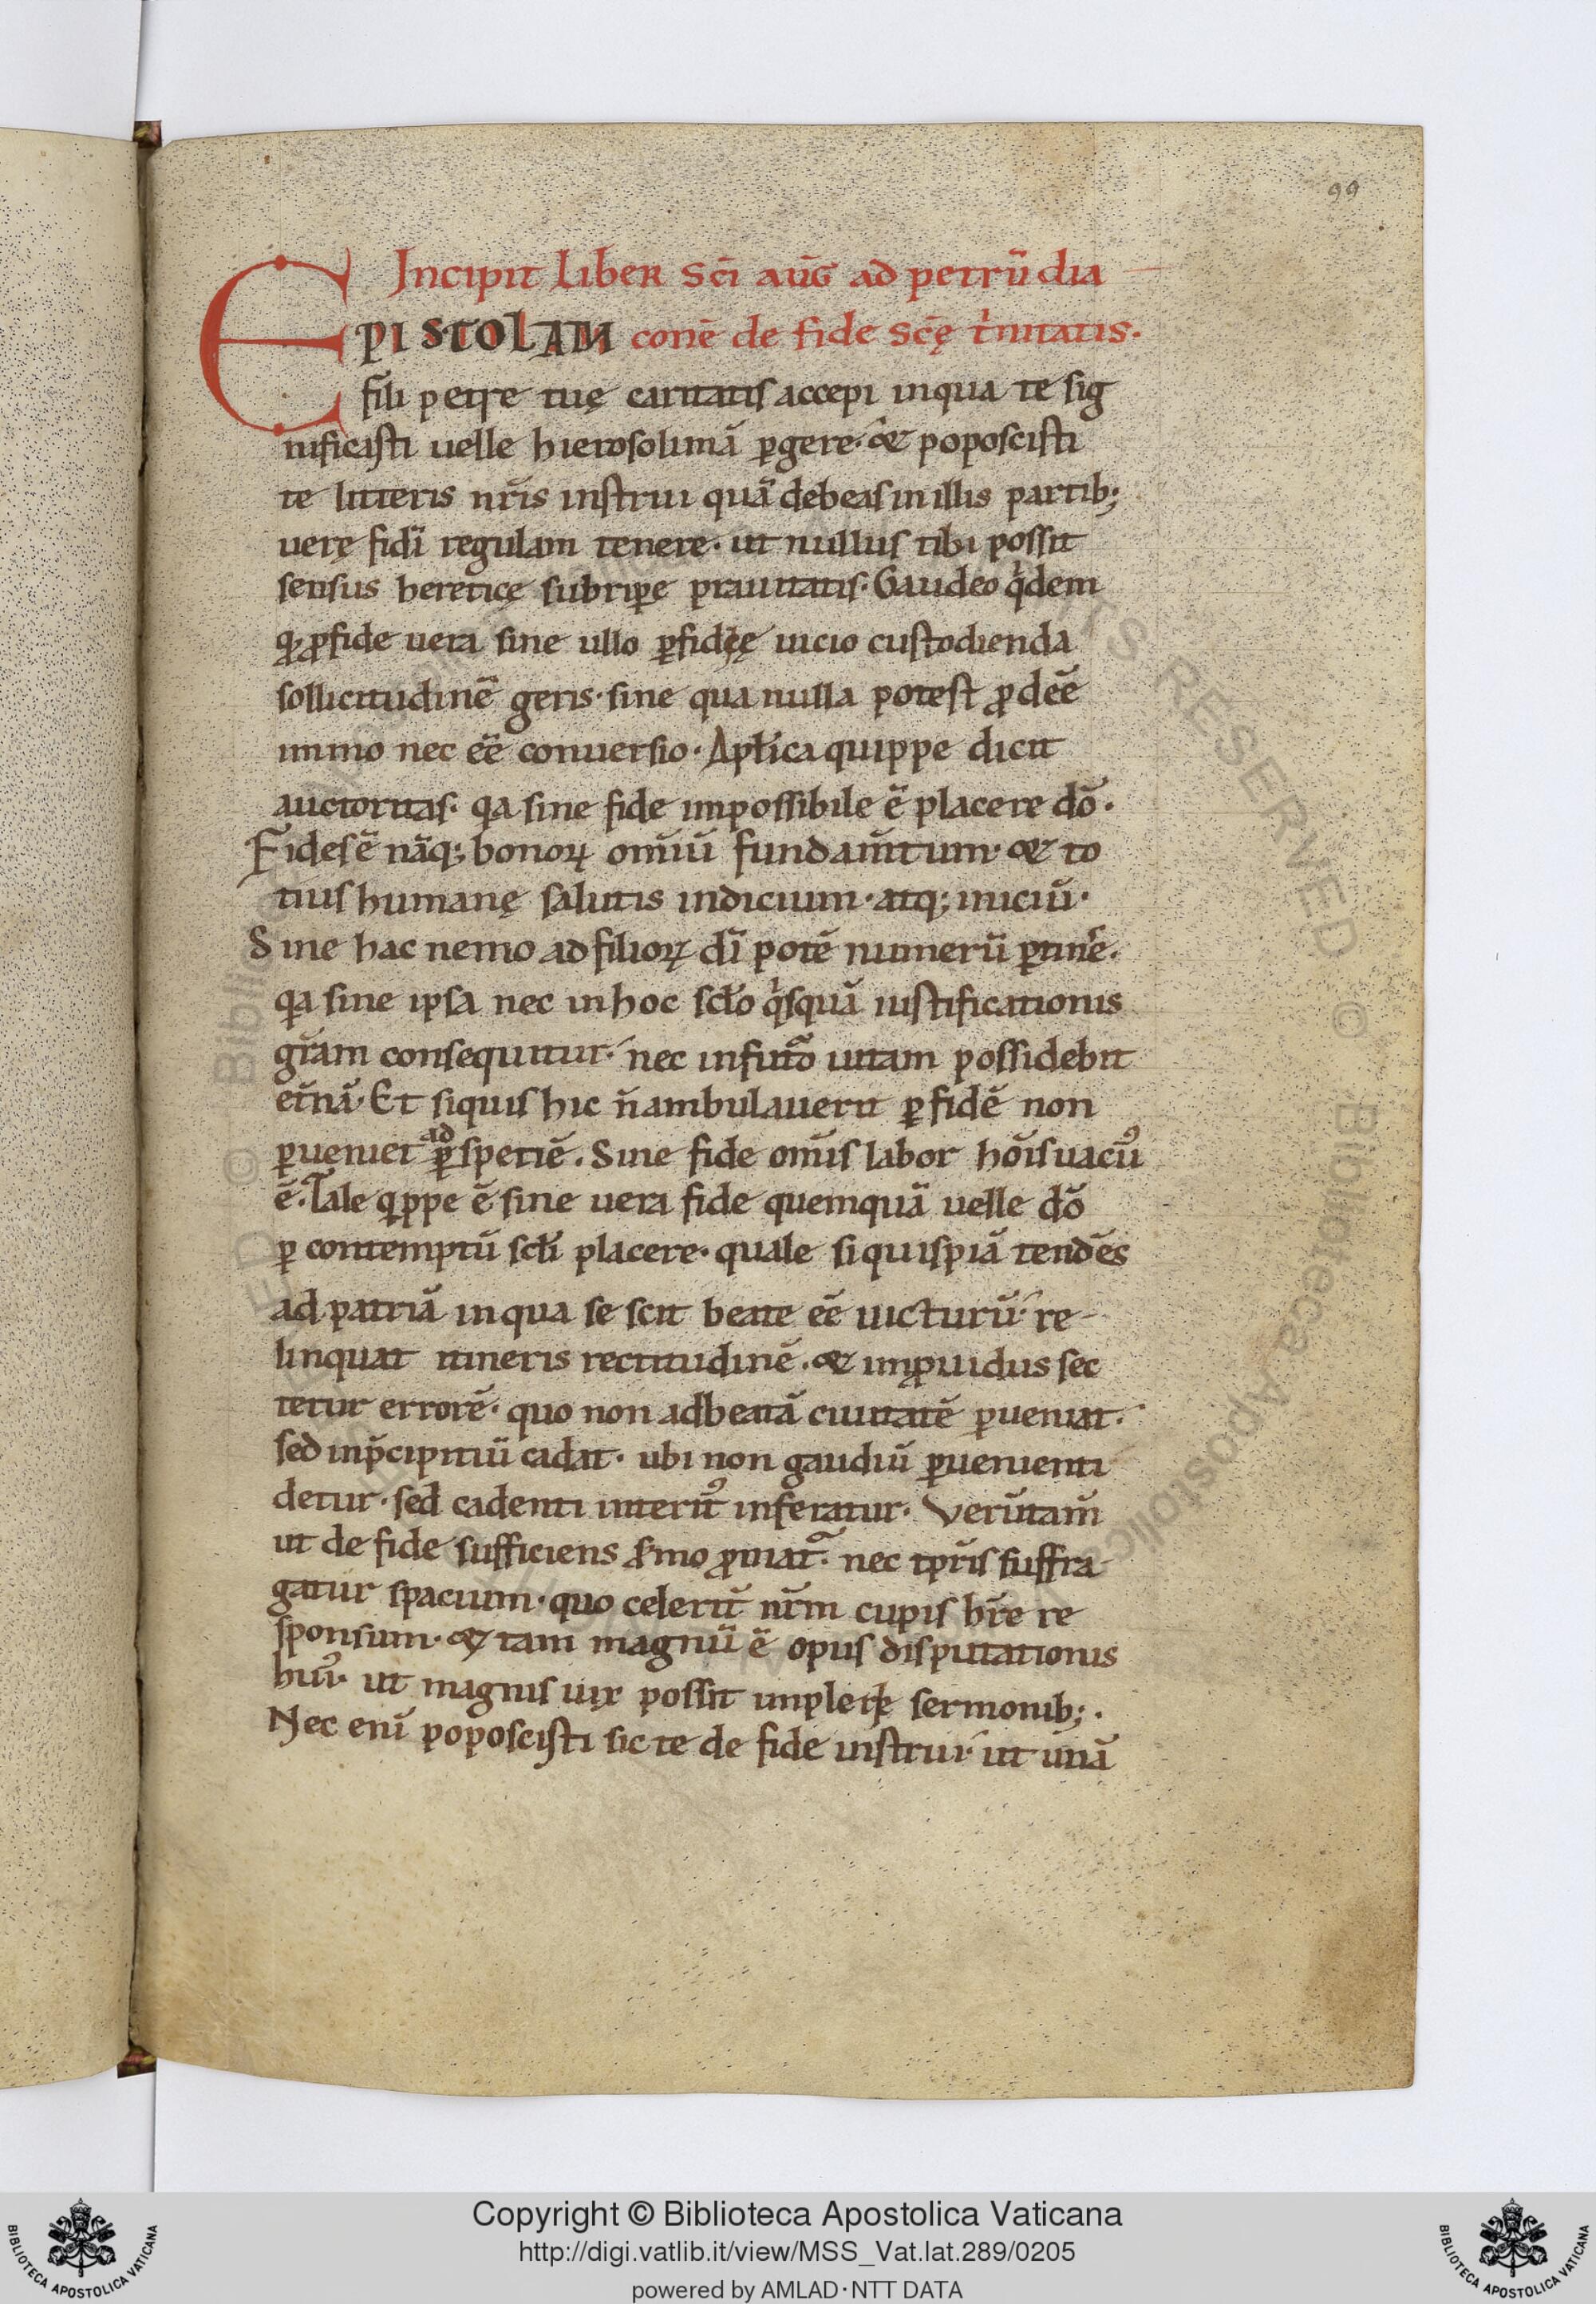 99
Incipit liber sc̄i aūg ad petrū dia
EPISTOLAM conē de fide sc̄ę t̍nitatis.
fili petre tuę caritatis accepi inqua te sig
nificasti uelle hierosolimā ꝑgere· & poposcisti
te litteris nr̄is instrui quā debeas in illis partib;
uerę fidī regulam tenere· ut nullus tibi possit
sensus hereticę subriꝑe prauitatis· Gaudeo q̍dem
qꝛ ꝓ fide uera sine ullo ꝑfidięę uicio custodienda
sollicitudinē geris· sine qua nulla potest ꝓdeē
immo nec eē conuersio· Apl̄ica quippe dicit
auctoritas· qa sine fide impossibile ē placere dō.
Fides ē nāq; bonoꝝ om̄iū fundam̄tum· & to
tius humanę salutis indicium· atq; iniciū·
Sine hac nemo ad filioꝝ dī potē numerū ꝑtinēe.
qa sine ipsa nec in hoc scl̄o q̍squā iustificationis
gr̄am consequitur· nec in futuro uitam possidebit
et̄nā· Et siquis hic n̄ ambulauerit ꝑ fidē non
ꝑueniet ad ꝑ spetiē. Sine fide om̄is labor hōis uacuꝰ
ē. Tale qppe ē sine uera fide quemquā uelle dō
ꝑ contemptū scl̄i placere· quale si quispiā tendēs
ad patriā in qua se scit beate eē uicturū· re-
linquat itineris rectitudinē. & imꝓuidus sec
tetur errorē· quo non ad beatā ciuitatē ꝑueniat·
sed inp̄cipitiū cadat· ubi non gaudiū ꝑuenienti
detur· sed cadenti interitꝰ inferatur· Verūtam̄
ut de fide sufficiens s̄mo ꝓmat᷑· nec tp̄ris suffra-
gatur spacium· quo celerit̄ nr̄m cupis hr̄e re
sponsum· & tam magnū ē opus disputationis
huiꝰ· ut magnis uix possit implere sermonib;·
Nec enī poposcisti sic te de fide instrui· ut unā
Copyright © Biblioteca Apostolica Vaticana
http://digi.vatlib.it/view/MSS_Vat.lat.289/0205
powered by AMLAD·NTT DATA
BIBLIOTECA APOSTOLICA VATICANA
BIBLIOTECA APOSTOLICA VATICANA